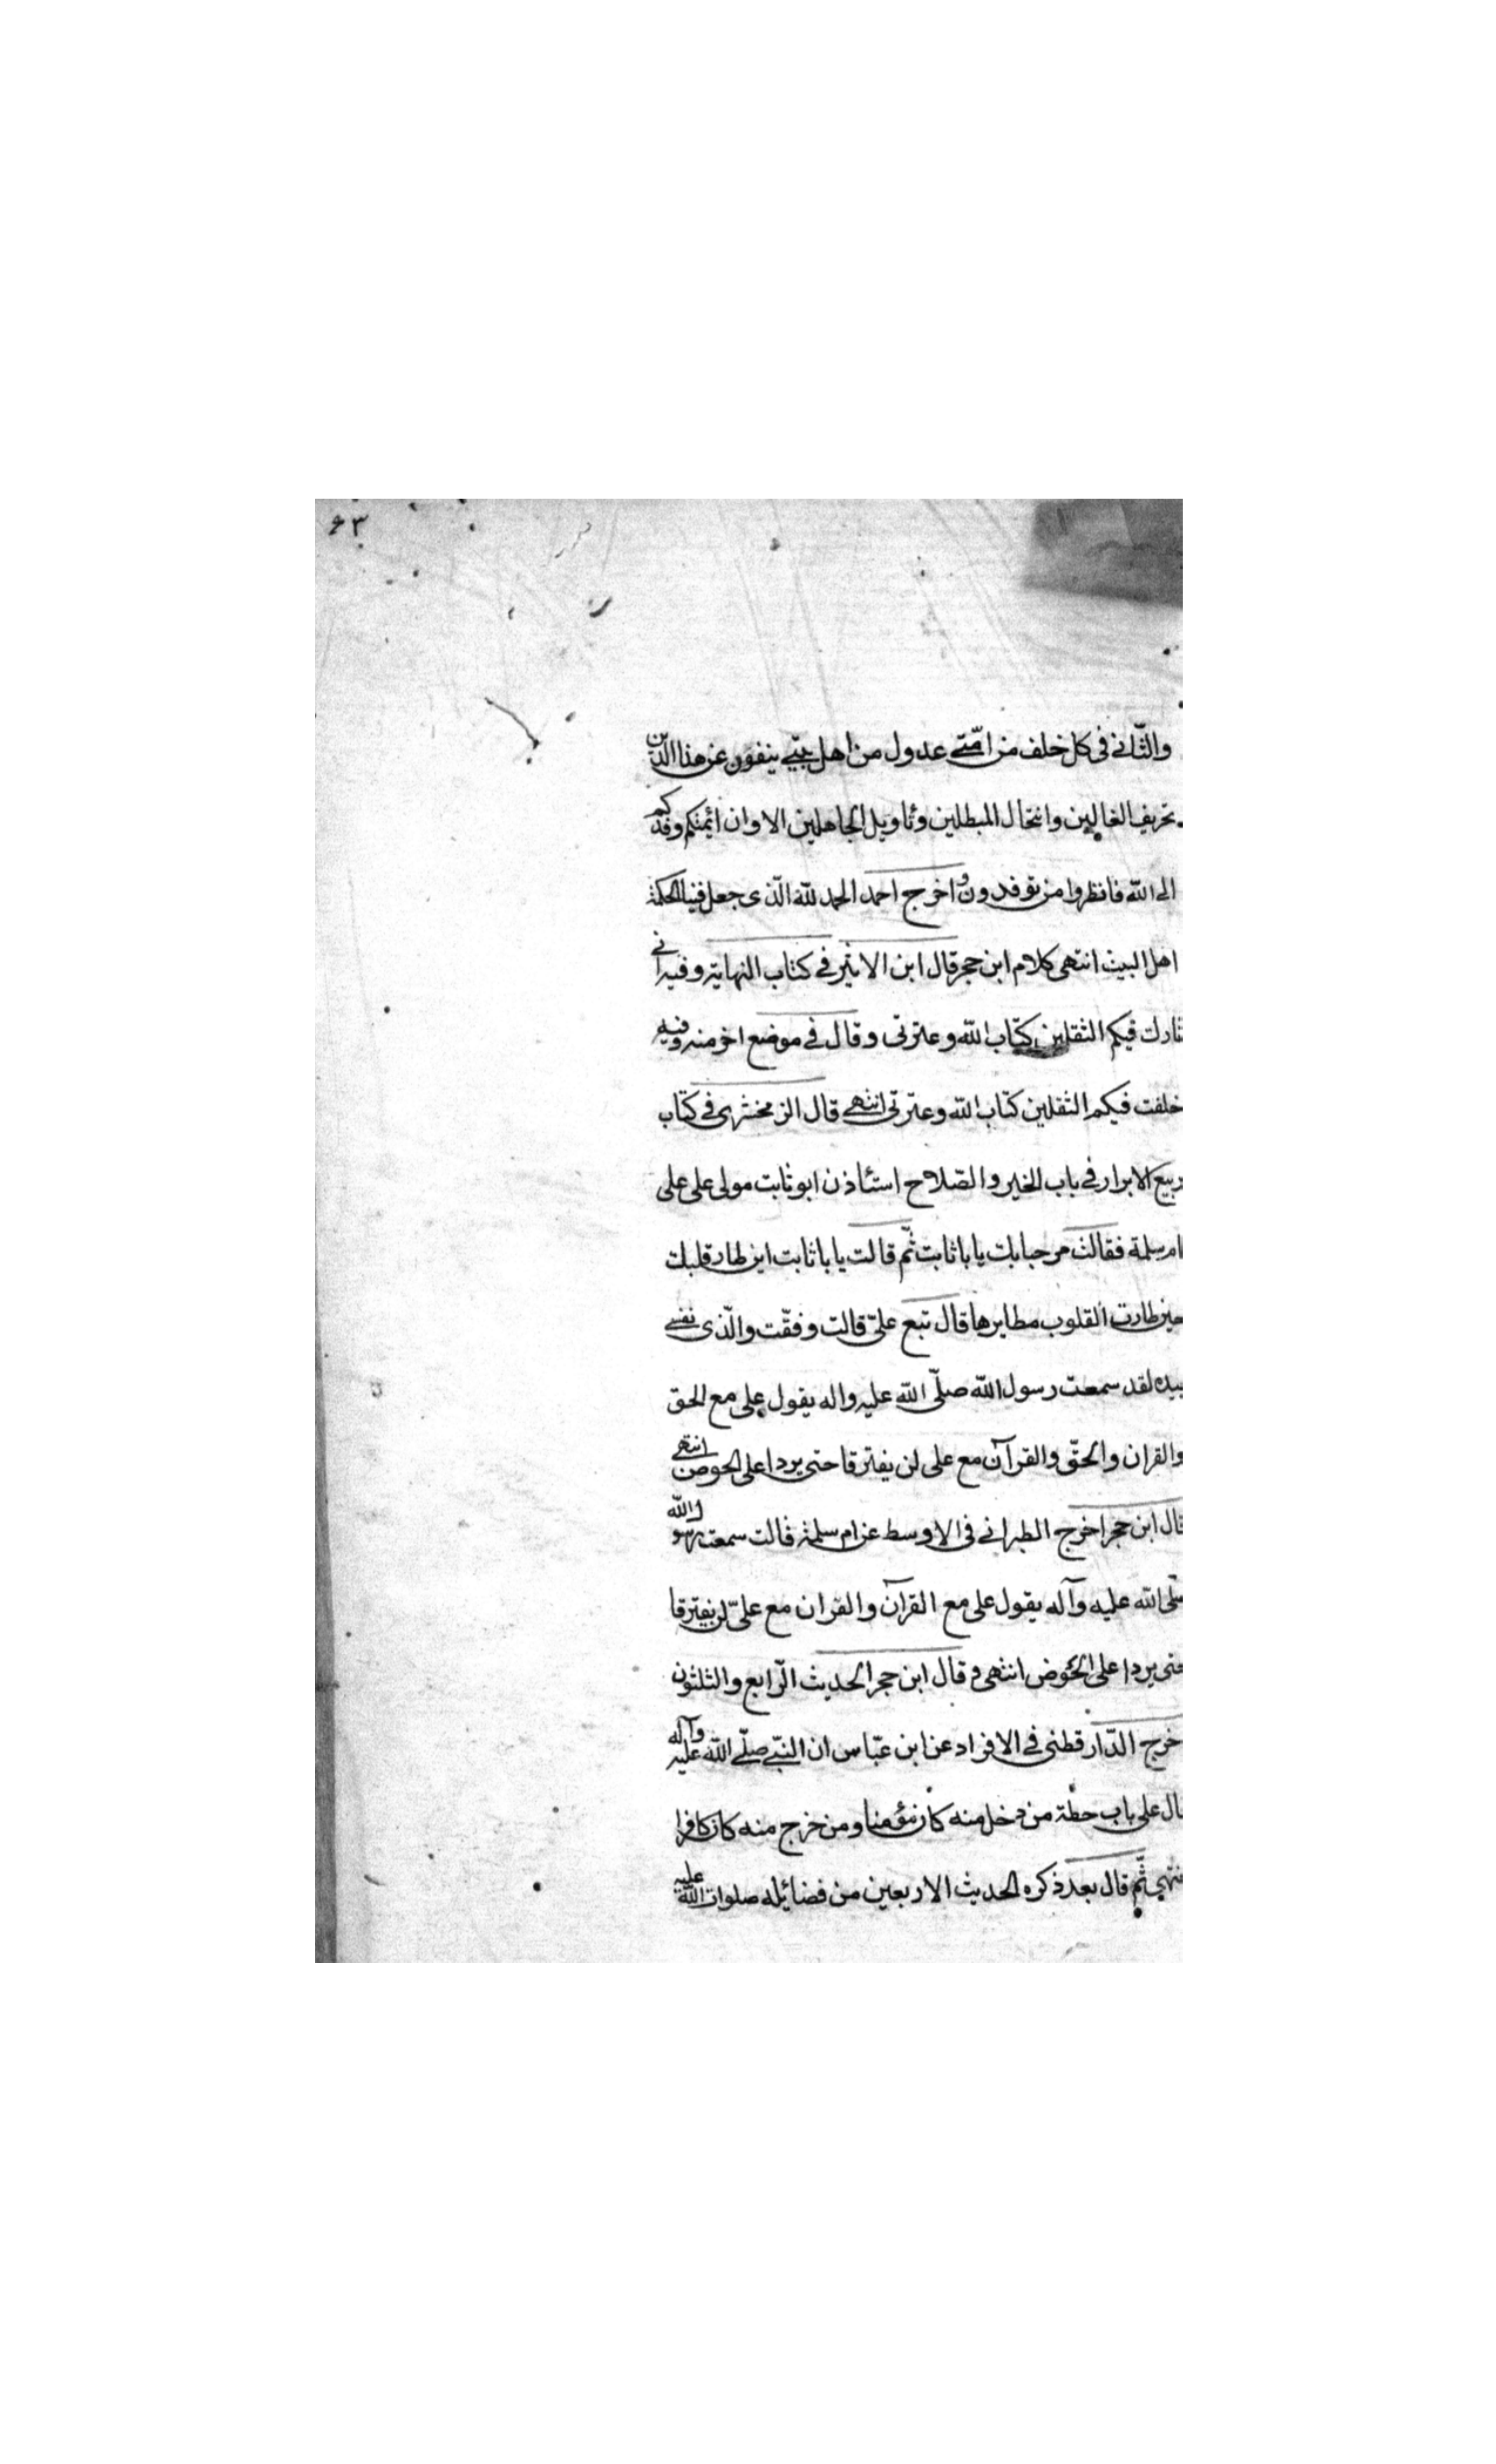 ۶۳
والثّانى فى كل خلف من امّتى عدول من اهل بيتى ينفون عن هذا الدّين
تحريف الغالين وانتحال المبطلين وتاويل الجاهلين الا وان ائمتكم وفدكم
الى الله فانظروا من توفدون و اخرج احمد الحمد لله الّذى جعل فينا الحكمة
اهل البيت انتهى كلام ابن حجر قال ابن الاثير فى كتاب النهاية وفيه انى
تارك فيكم الثقلين كتاب الله وعترتى وقال فى موضع اخر منه وفيه
خلفت فيكم الثقلين كتاب الله وعترتى انتهى قال الزمخشرى فى كتاب
ربيع الابرار فى باب الخير والصّلاح استئاذن ابو ثابت مولى على على
ام سلمة فقالت مرحبا بك يا با ثابت ثّم قالت يا با ثابت اين طار قلبك
حين طارت القلوب مطايرها قال تبع علىّ قالت وفقّت والّذى نفسى
بيده لقد سمعت رسول الله صلّى الله عليه واله يقول على مع الحق
والقران والحقّ والقرآن مع على لن يفترقا حتى يردا على الحوض انتهى
قال ابن حجر اخرج الطبرانى فى الاوسط عن ام سلمة قالت سمعت رسول الله
صلى الله عليه وآله يقول على مع القرآن والقران مع علىّ لن يفترقا
حتى يردا على الحوض انتهى و قال ابن حجر الحديث الرّابع والثلثون
اخرج الدّارقطنى فى الافراد عن ابن عبّاس ان النبّى صلّى الله عليه وآله
قال على باب حطة من دخل منه كان مؤمنا ومن خرج منه كان كافرا
انتهى ثّم قال بعد ذكره الحديث الاربعين من فضائله صلوات الله عليه